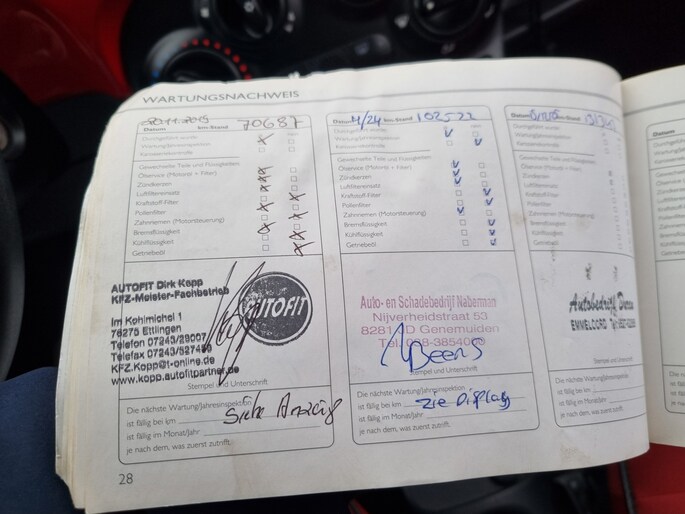 WARTUNGSNACHWEIS
Datum km-Stand 70687
Durchgeführt wurde:
Wartung/Jahresinspektion
Karosseriekontrolle
Gewechselte Teile und Flüssigkeiten:
Ölservice (Motoröl + Filter)
Zündkerzen
Luftfiltereinsatz
Kraftstoff-Filter
Pollenfilter
Zahnriemen (Motorsteuerung)
Bremsflüssigkeit
Kühlflüssigkeit
Getriebeöl
AUTOFIT Dirk Kopp
KFZ-Meister-Fachbetrieb
Im Kohlmichel 1
76275 Ettlingen
Telefon 07243/29007
Telefax 07243/527450
KFZ.Kopp@t-online.de
www.kopp.autofitpartner.de
AUTOFIT
Stempel und Unterschrift
Die nächste Wartung/Jahresinspektion
ist fällig bei km
ist fällig im Monat/Jahr
je nach dem, was zuerst zutrifft.
Siehe Anzeige
28
4/24 102522
Datum km-Stand
Durchgeführt wurde:
Wartung/Jahresinspektion
Karosseriekontrolle
Gewechselte Teile und Flüssigkeiten:
Ölservice (Motoröl + Filter)
Zündkerzen
Luftfiltereinsatz
Kraftstoff-Filter
Pollenfilter
Zahnriemen (Motorsteuerung)
Bremsflüssigkeit
Kühlflüssigkeit
Getriebeöl
Auto- en Schadebedrijf Naberman
Nijverheidstraat 53
8281 JD Genemuiden
Tel.
Stempel und Unterschrift
Die nächste Wartung/Jahresinspektion
ist fällig bei km zie Display
ist fällig im Monat/Jahr
je nach dem, was zuerst zutrifft.
Datum km-Stand
Durchgeführt wurde:
Wartung/Jahresinspektion
Karosseriekontrolle
Gewechselte Teile und Flüssigkeiten:
Ölservice (Motoröl + Filter)
Zündkerzen
Luftfiltereinsatz
Kraftstoff-Filter
Pollenfilter
Zahnriemen (Motorsteuerung)
Bremsflüssigkeit
Kühlflüssigkeit
Getriebeöl
Autobedrijf
EMMELOORD
Stempel und Unterschrift
Die nächste Wartung/Jahresinspektion
ist fällig bei km
ist fällig im Monat/Jahr
je nach dem, was zuerst zutrifft.